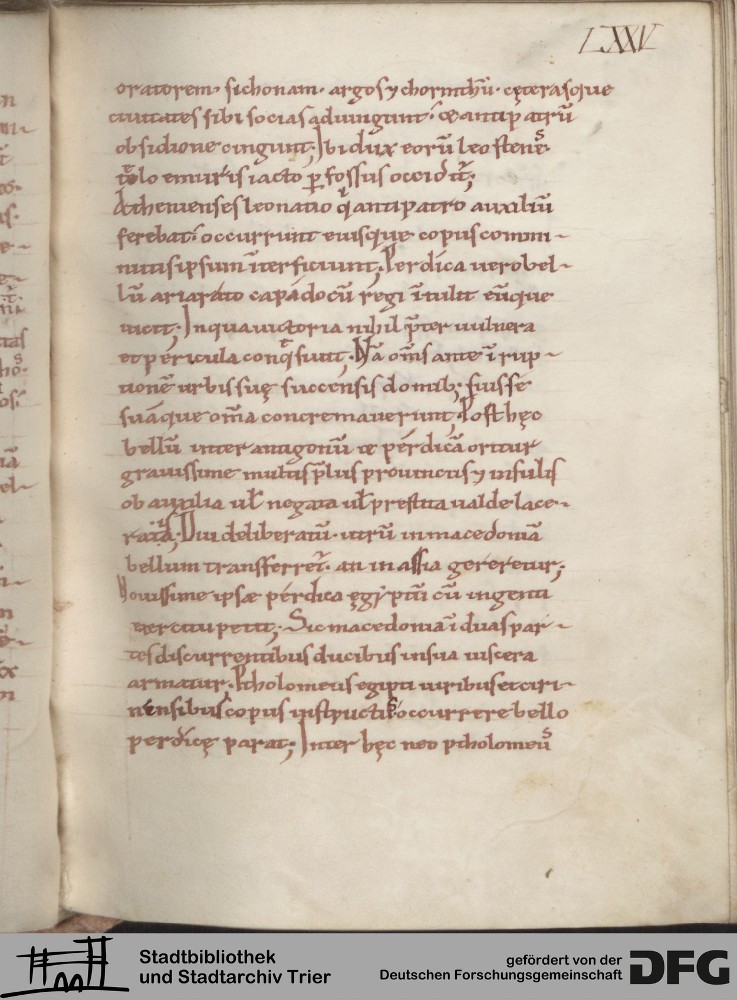 LXXV
oratorem, sichonam, argos & chorinthū, cęterasque
ciuitates sibi socias adiungunt, & antipatrū
obsidione cingunt; Ibi dux eorū leostenes
telo e muris iacto p fossus occidit;
Athenienses leonatio q antipatro auxiliū
ferebat, occurrunt eiusque copiis commi-
nutis ipsum īterficiunt; Perdica uero bel-
lū ariarato capadocū regi ītulit eūque
uicit; In qua uictoria nihil pter uulnera
et pericula conqsiuit; Nā om̄s ante īrup-
tionē urbis suę succensis domib; su isse
suaque om̄a concremauerunt; Post hęc
bellū inter antigonū & perdicā oritur
grauissime multis plus prouinciis & insulis
ob auxilia ul negata ul prestita ualde lace-
ratis; Diu deliberatū, utrū in macedoniā
bellum transferret, an in assia gereretur;
Nouissime ipse perdica ęgiptū cū ingenti
exercitu petit; Sic macedonia ī duas par-
tes discurrentibus ducibus in sua uiscera
armatur. Ptholomeus egipti uiribus et ciri-
nensibus copiis instructis occurrere bello
perdicę parat; Inter hęc neo ptholomeus
Stadtbibliothek
und Stadtarchiv Trier
gefördert von der
Deutschen Forschungsgemeinschaft
DFG